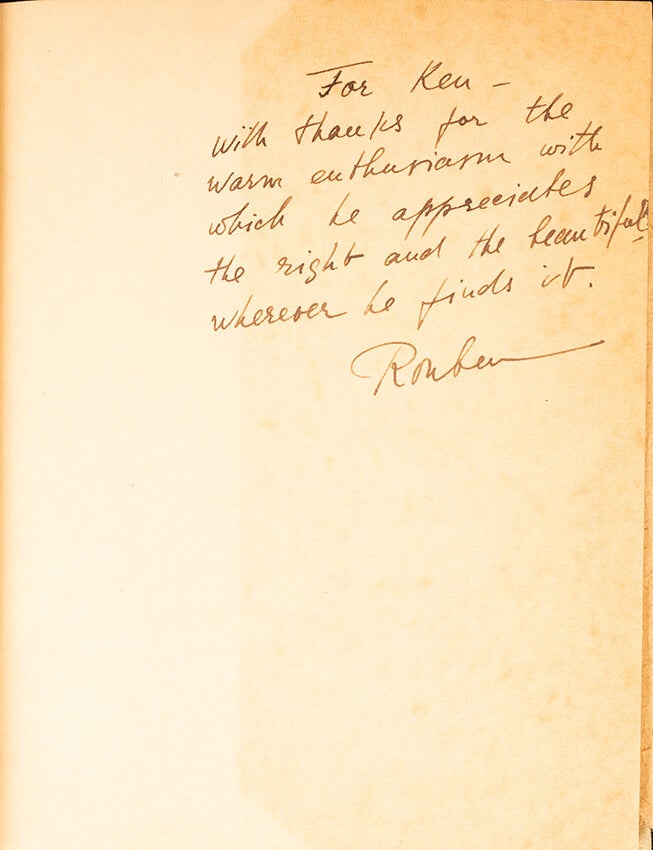 For Ken —
with thanks for the
warm enthusiasm with
which he appreciates
the right and the beautiful
wherever he finds it.
Rouben